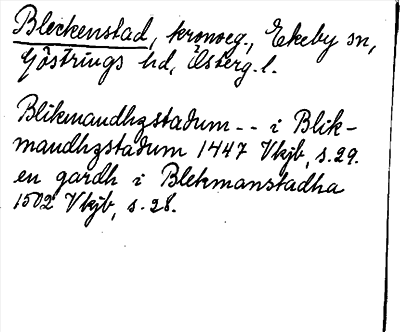 Bleckenstad, kronoeg., Ekeby sn,
Göstrings hd, Österg. l.
Blikmandhzstadum -- i Blik-
mandhzstadum 1447 Vkjb, s. 29.
en gardh i Blekmanstadha
1502 Vkjb, s. 28.